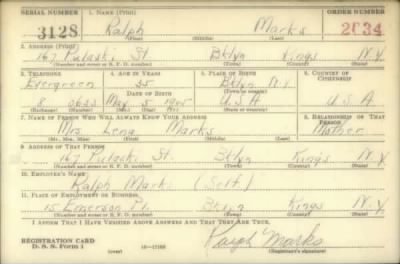 SERIAL NUMBER 1. NAME (Print) ORDER NUMBER
3128 Ralph Marks 2034
(First) (Middle) (Last)
2. ADDRESS (Print)
167 Pulaski St. Bklyn Kings N.Y.
(Number and street or R. F. D. number) (Town) (County) (State)
3. TELEPHONE 4. AGE IN YEARS 5. PLACE OF BIRTH 6. COUNTRY OF CITIZENSHIP
Evergreen 35 Bklyn N.Y.
DATE OF BIRTH (Town or county)
8 May 5 1905 U.S.A U.S.A
(Exchange) (Number) (Mo.) (Day) (Yr.) (State or country)
7. NAME OF PERSON WHO WILL ALWAYS KNOW YOUR ADDRESS 8. RELATIONSHIP OF THAT PERSON
Mrs Lena Marks Mother
(Mr., Mrs., Miss) (First) (Middle) (Last)
9. ADDRESS OF THAT PERSON
167 Pulaski St. Bklyn Kings N.Y.
(Number and street or R. F. D. number) (Town) (County) (State)
10. EMPLOYER'S NAME
Ralph Marks (Self)
11. PLACE OF EMPLOYMENT OR BUSINESS
15 Emerson Pl. Bklyn Kings N.Y.
(Number and street or R. F. D. number) (Town) (County) (State)
I AFFIRM THAT I HAVE VERIFIED ABOVE ANSWERS AND THAT THEY ARE TRUE.
REGISTRATION CARD
D. S. S. Form 1 (over) Ralph Marks
(Registrant's signature)